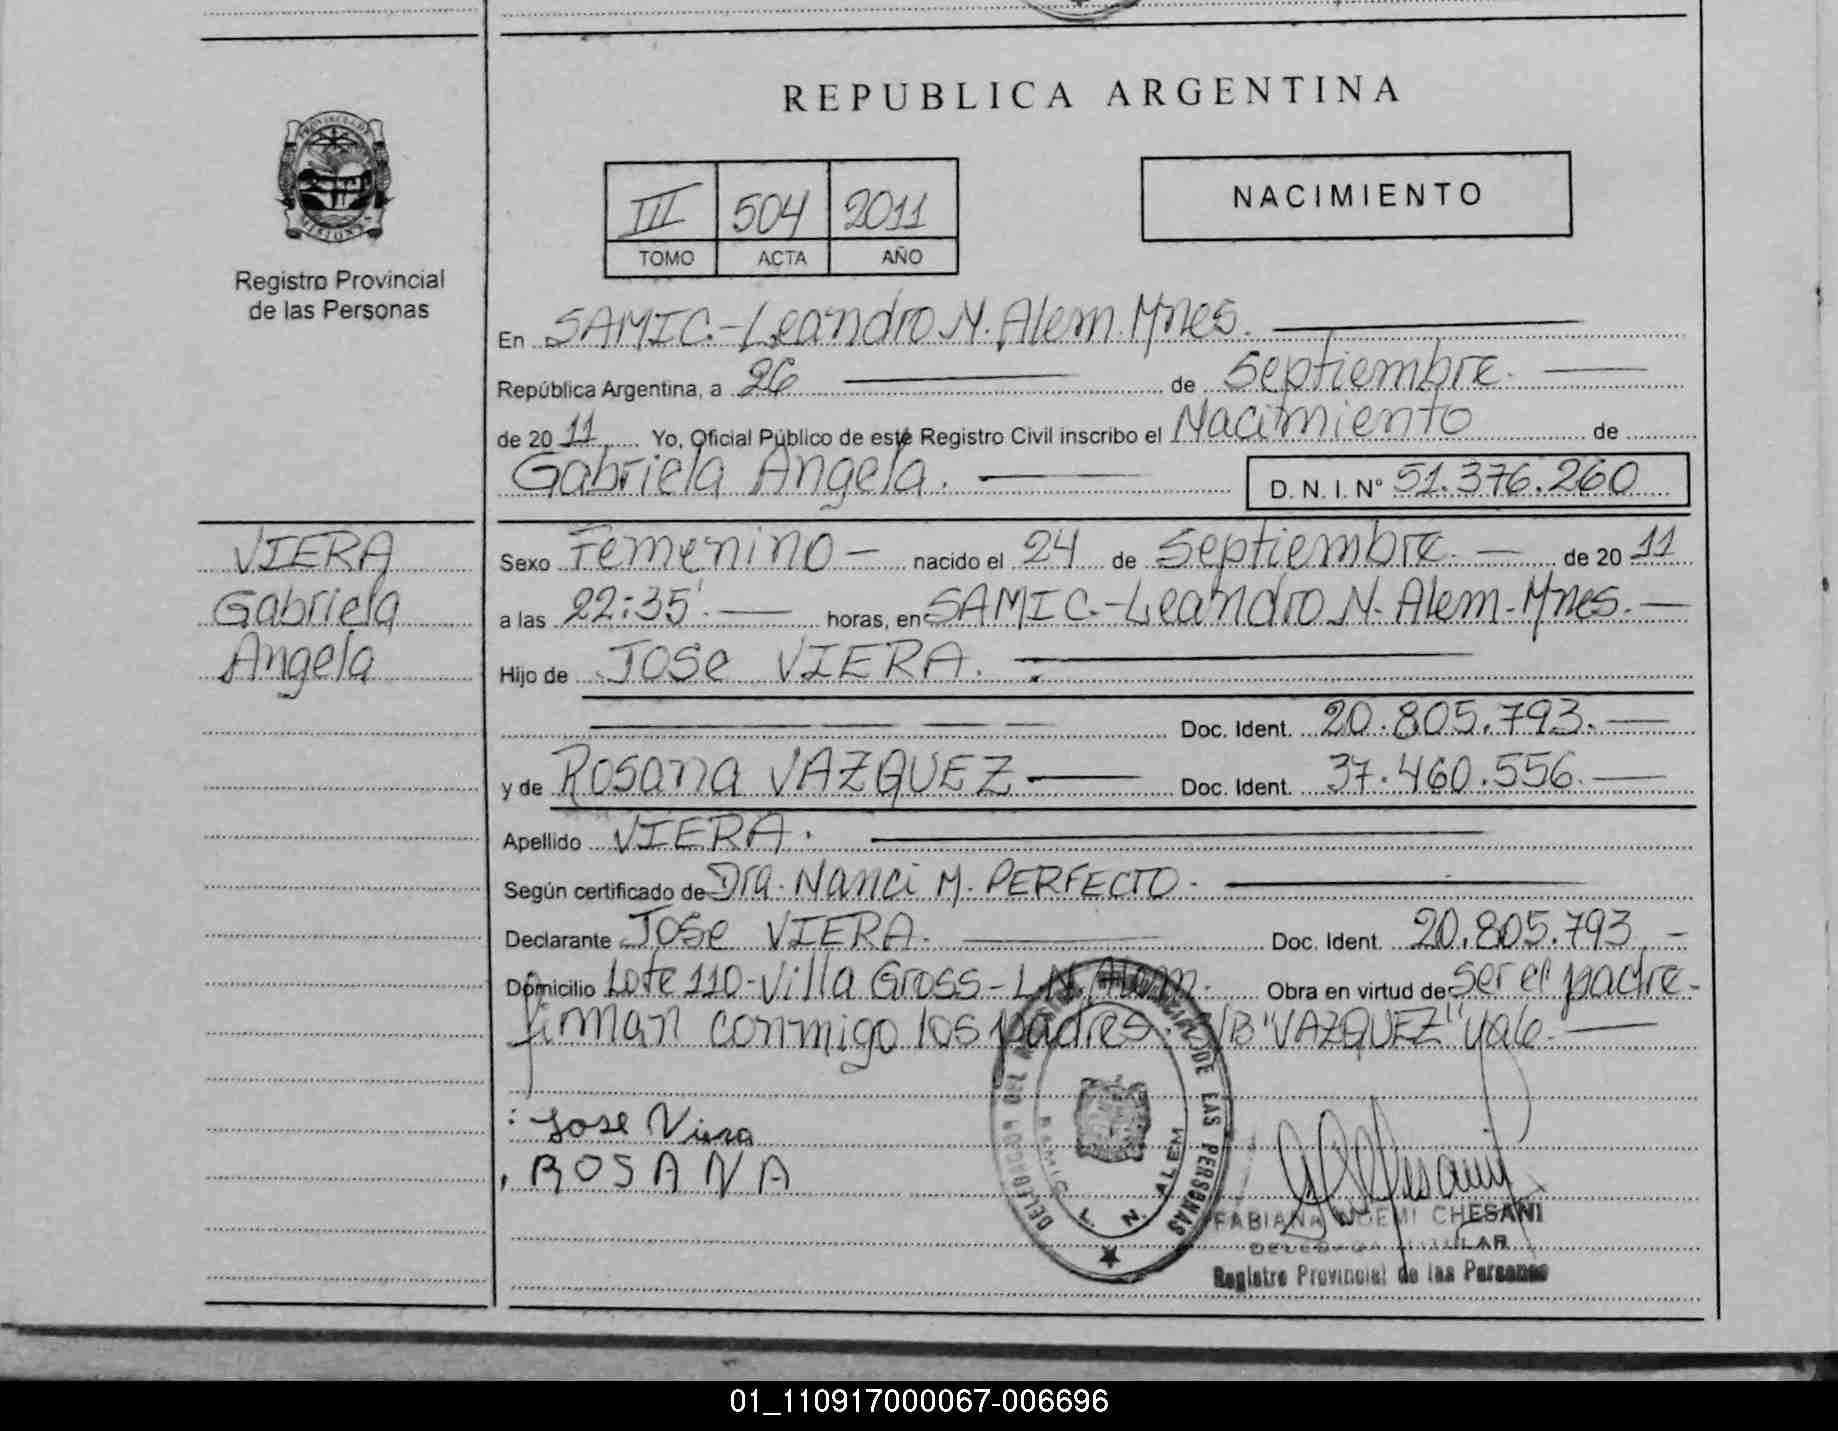 REPUBLICA ARGENTINA
PROVINCIA DE
MISIONES
Registro Provincial
de las Personas
III 504 2011
TOMO ACTA AÑO
NACIMIENTO
En SAMIC.-Leandro N. Alem. Mnes.
República Argentina, a 26 de Septiembre.
de 20 11 Yo, Oficial Público de este Registro Civil inscribo el Nacimiento de
Gabriela Angela. D. N. I. N° 51.376.260
VIERA
Gabriela
Angela
Sexo Femenino - nacido el 24 de Septiembre. de 20 11
a las 22:35'. horas, en SAMIC.-Leandro N. Alem-Mnes.
Hijo de Jose VIERA.
Doc. Ident. 20.805.793.
y de Rosana VAZQUEZ Doc. Ident. 37.460.556.
Apellido VIERA.
Según certificado de Dra. Nanci M. PERFECTO.
Declarante Jose VIERA. Doc. Ident. 20.805.793 -
Domicilio Lote 110-Villa Gross-L.N. Alem. Obra en virtud de ser el padre.
firman conmigo los padres. S/B "VAZQUEZ" vale.
Jose Viera
ROSANA
DE LAS PERSONAS
L. N. ALEM
FABIANA NOEMI CHESANI
Registro Provincial de las Personas
01_110917000067-006696